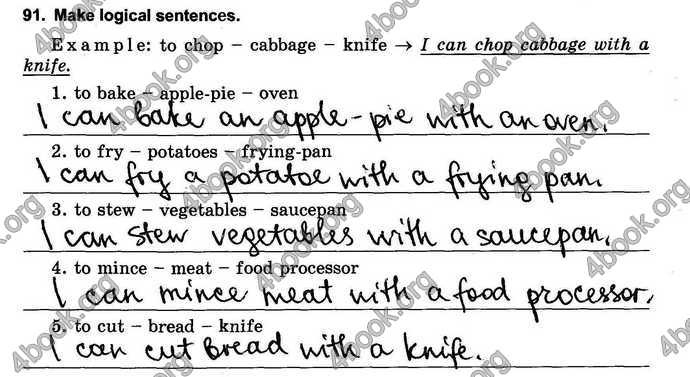 91. Make logical sentences.
Example: to chop – cabbage – knife → I can chop cabbage with a
knife.
1. to bake – apple-pie – oven
I can bake an apple-pie with an oven.
2. to fry – potatoes – frying-pan
I can fry a potatoe with a frying pan.
3. to stew – vegetables – saucepan
I can stew vegetables with a saucepan.
4. to mince – meat – food processor
I can mince meat with a food processor.
5. to cut – bread – knife
I can cut bread with a knife.
4book.org